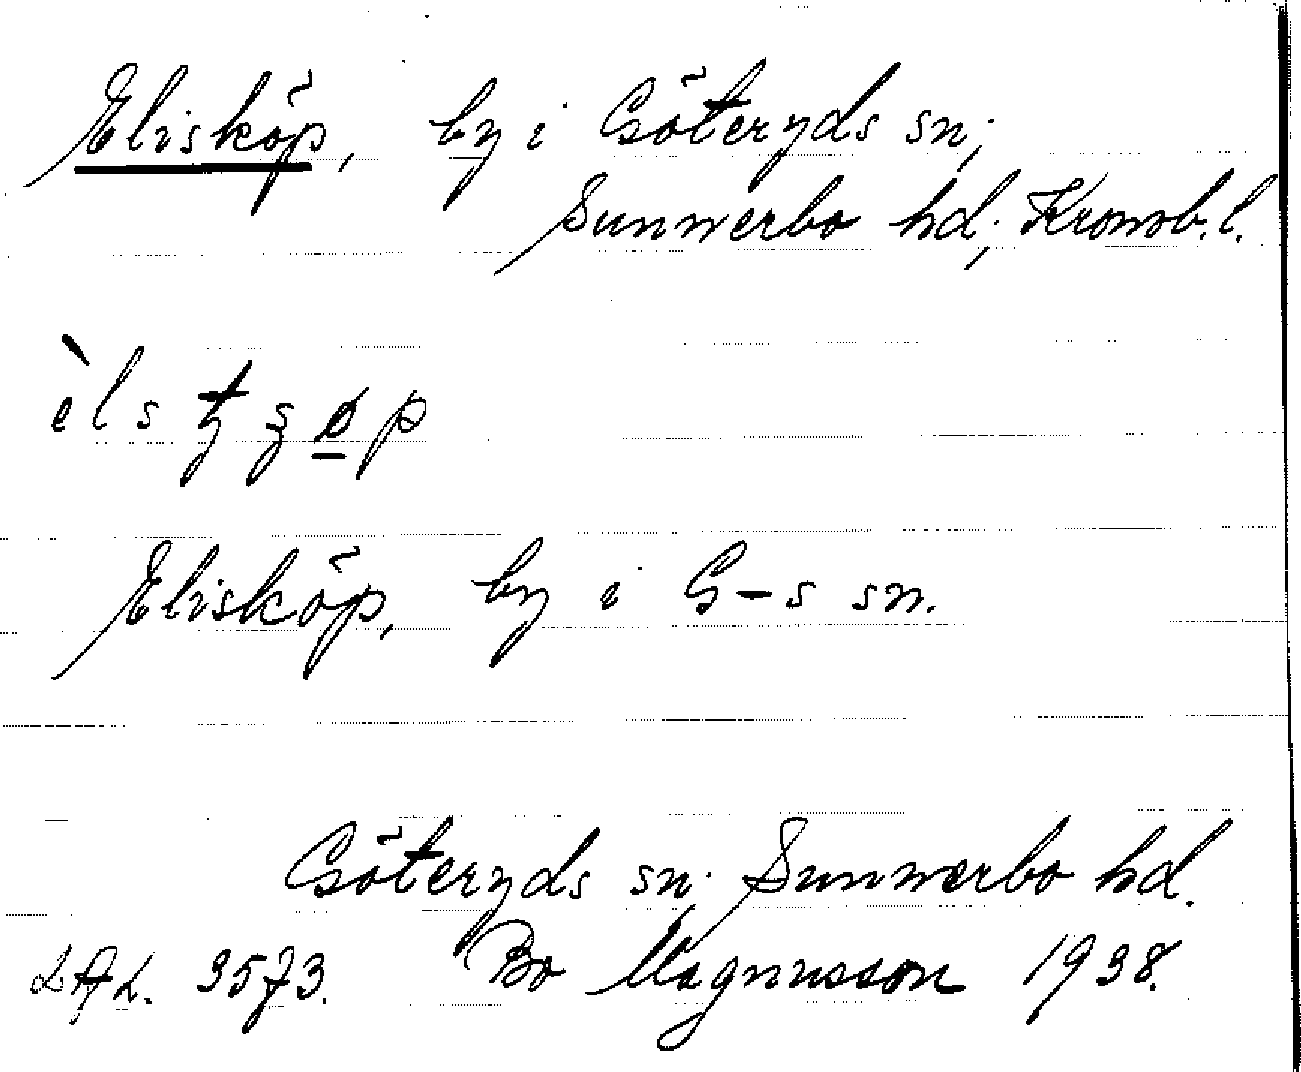 Elisköp, by i Göteryds sn;
Sunnerbo hd; Kronob. l.
èlsꞧʂøp
Elisköp, by i G–s sn.
Göteryds sn. Sunnerbo hd.
LAL. 3573. Bo Magnusson 1938.